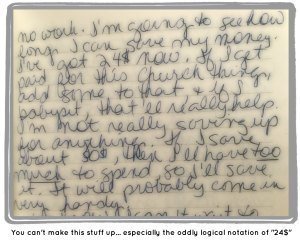 no work. I'm going to see how
long I can save my money.
I've got 24$ now. If I get
paid for this Church thing,
add some to that, & if I
babysit, that'll really help.
I'm not really saving up
for anything. If I save
about 80$, then I'll have too
much to spend, so I'll save
it. It will probably come in
very handy.
You can't make this stuff up... especially the oddly logical notation of "24$"